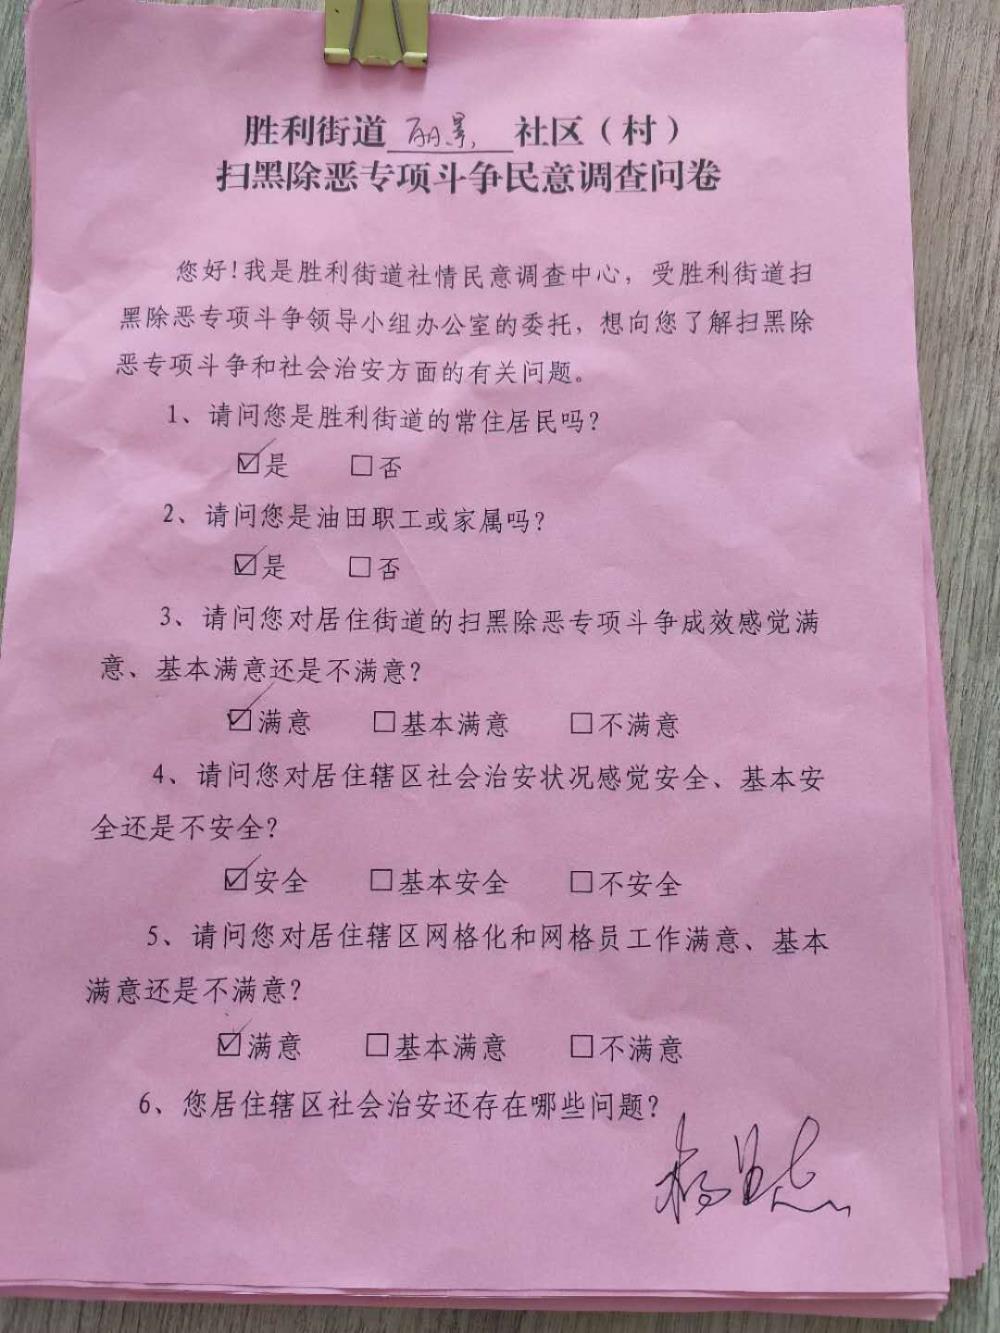 胜利街道 丽景 社区（村）
扫黑除恶专项斗争民意调查问卷
您好！我是胜利街道社情民意调查中心，受胜利街道扫
黑除恶专项斗争领导小组办公室的委托，想向您了解扫黑除
恶专项斗争和社会治安方面的有关问题。
1、请问您是胜利街道的常住居民吗？
☑是 □否
2、请问您是油田职工或家属吗？
☑是 □否
3、请问您对居住街道的扫黑除恶专项斗争成效感觉满
意、基本满意还是不满意？
☑满意 □基本满意 □不满意
4、请问您对居住辖区社会治安状况感觉安全、基本安
全还是不安全？
☑安全 □基本安全 □不安全
5、请问您对居住辖区网格化和网格员工作满意、基本
满意还是不满意？
☑满意 □基本满意 □不满意
6、您居住辖区社会治安还存在哪些问题？